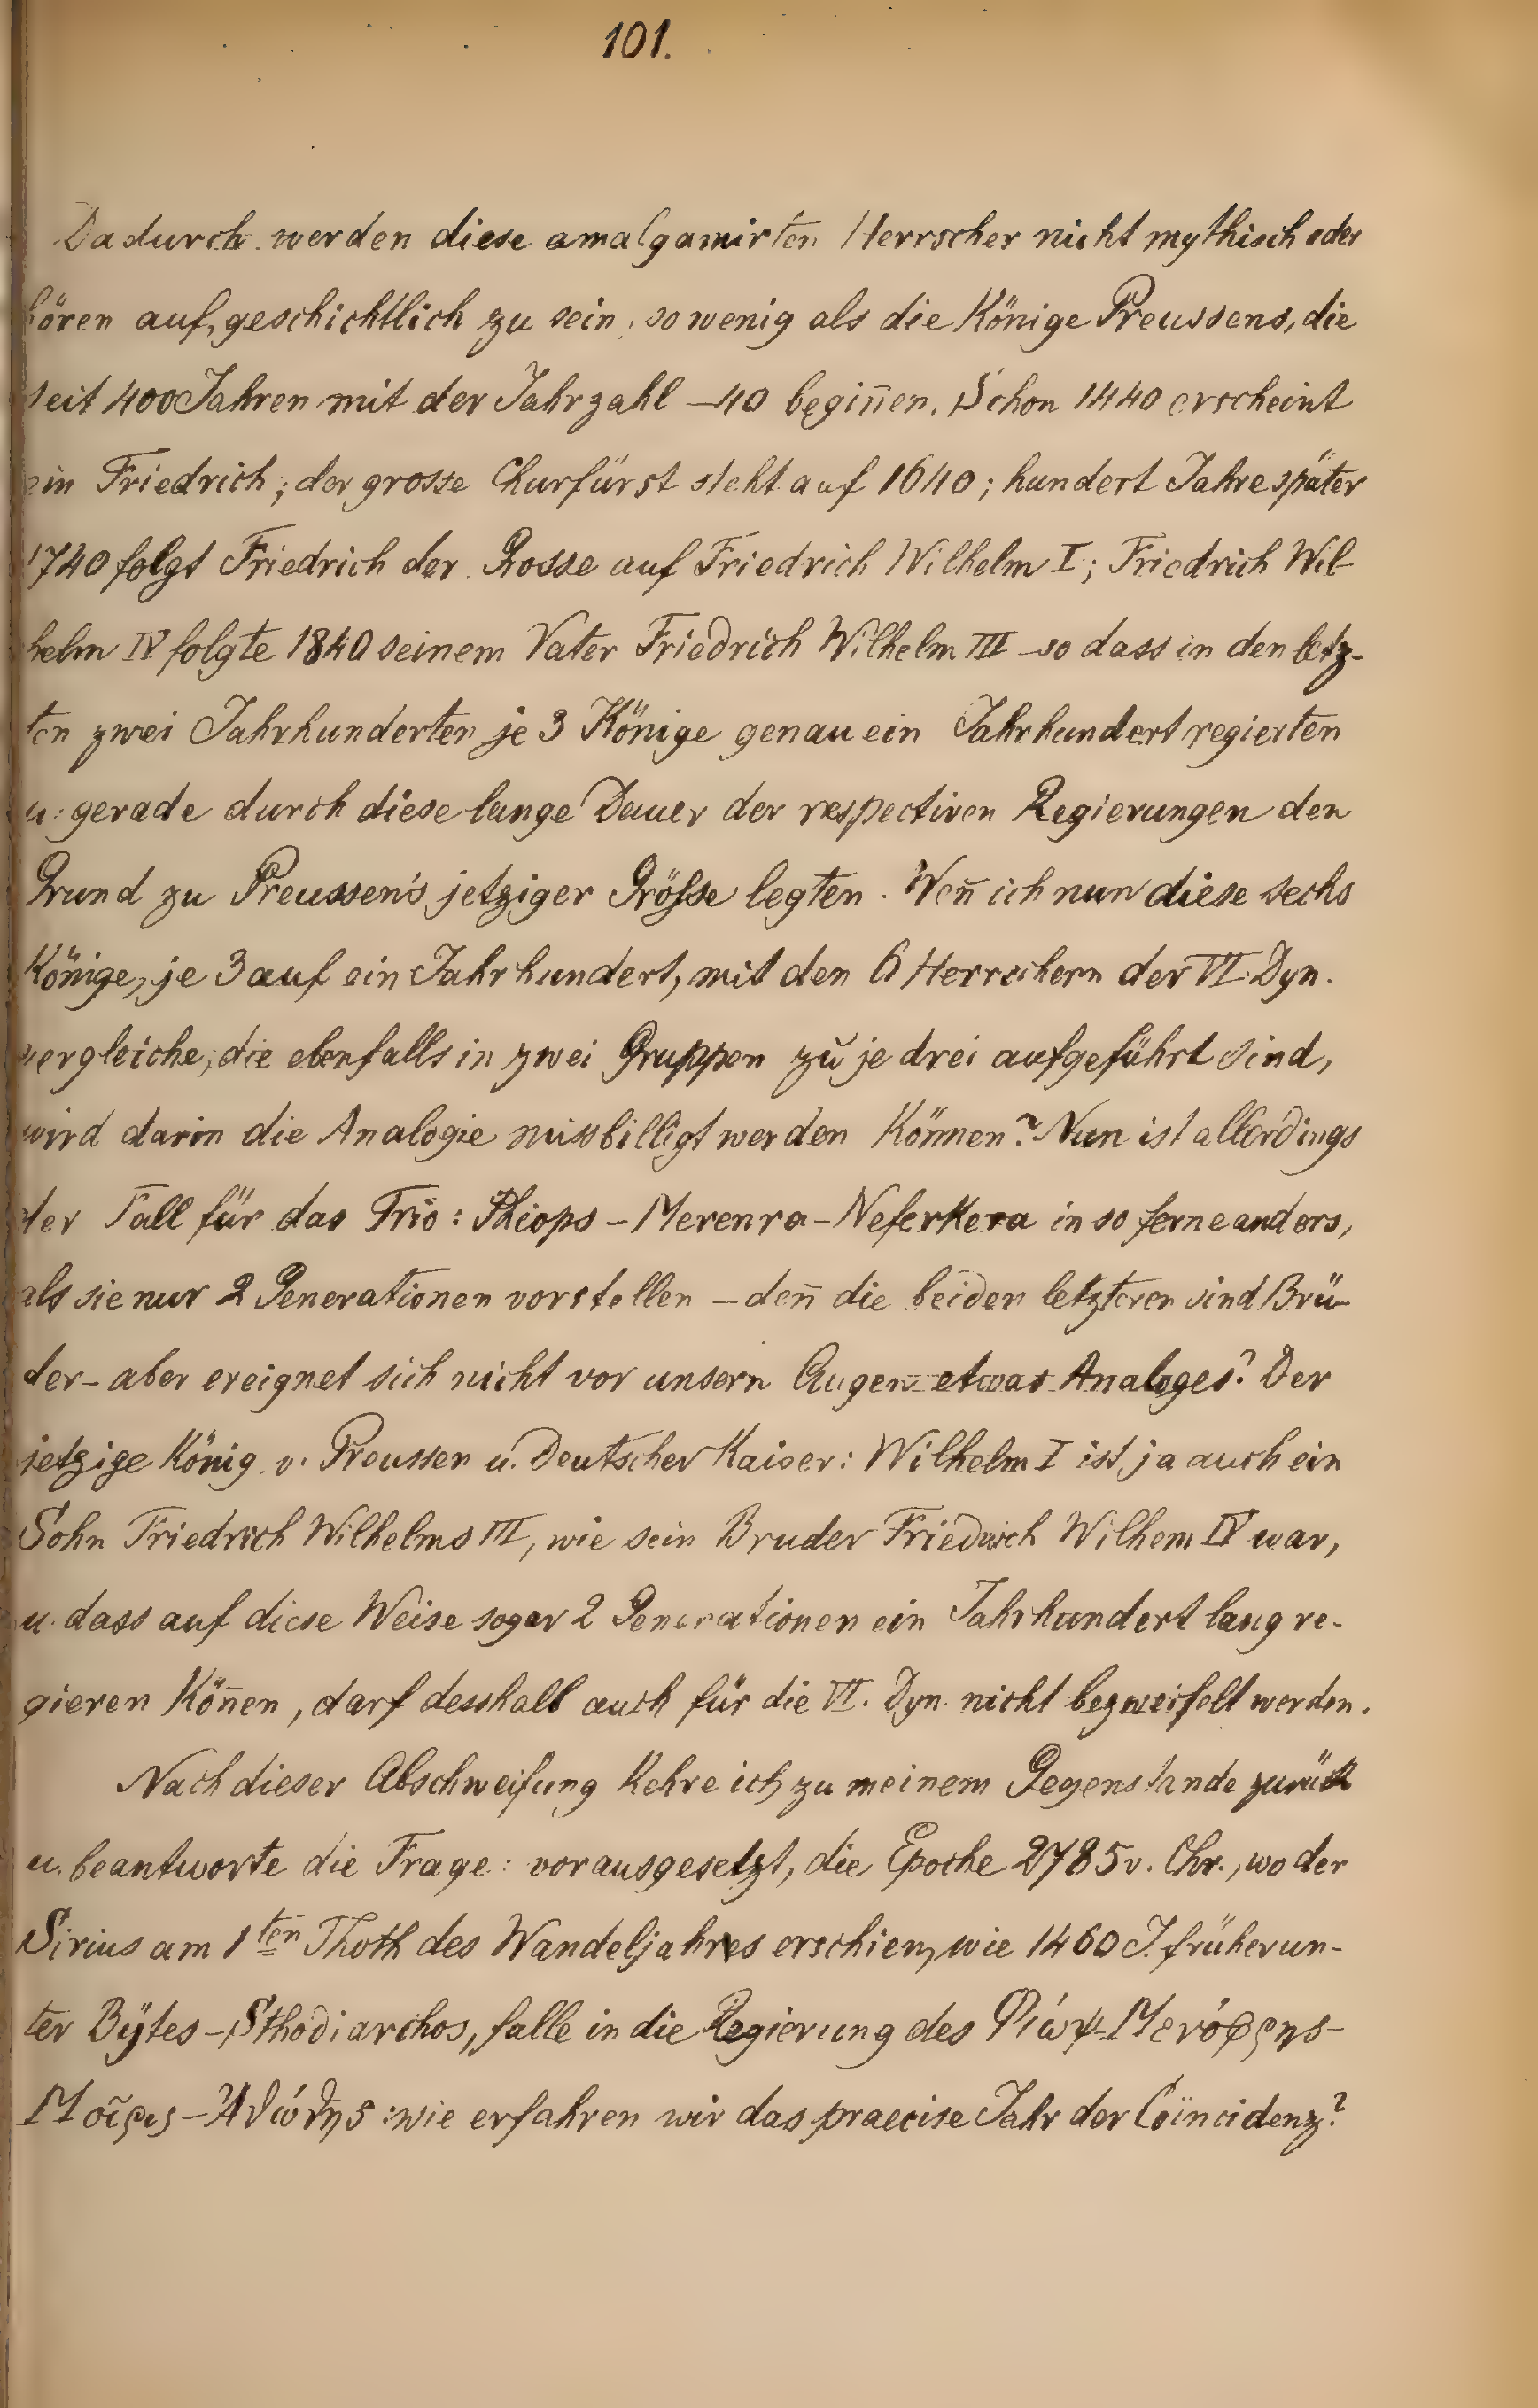 101.
Dadurch werden diese amalgamirten Herrscher nicht mythisch oder
hören auf, geschichtlich zu sein, so wenig als die Könige Preussens, die
seit 400 Jahren mit der Jahrzahl –40 begin̄en. Schon 1440 erscheint
ein Friedrich; der grosse Churfürst steht auf 1640; hundert Jahre später
1740 folgt Friedrich der Grosse auf Friedrich Wilhelm I; Friedrich Wil-
helm IV folgte 1840 seinem Vater Friedrich Wilhelm III – so dass in den letz-
ten zwei Jahrhunderten je 3 Könige genau ein Jahrhundert regierten
u. gerade durch diese lange Dauer der respectiven Regierungen den
Grund zu Preussen's jetziger Grösse legten. Wen̄ ich nun diese sechs
Könige, je 3 auf ein Jahrhundert, mit den 6 Herrschern der VI Dyn.
vergleiche, die ebenfalls in zwei Gruppen zu je drei aufgeführt sind,
wird darin die Analogie missbilligt werden können? Nun ist allerdings
der Fall für das Trio: Phiops – Merenra – Neferkera in so ferne anders,
als sie nur 2 Generationen vorstellen – den̄ die beiden letzteren sind Brü-
der – aber ereignet sich nicht vor unsern Augen etwas Analoges? Der
jetzige König v. Preussen u. Deutscher Kaiser: Wilhelm I ist ja auch ein
Sohn Friedrich Wilhelms III, wie sein Bruder Friedrich Wilhem IV war,
u. dass auf diese Weise sogar 2 Generationen ein Jahrhundert lang re-
gieren kön̄en, darf desshalb auch für die VI. Dyn. nicht bezweifelt werden.
Nach dieser Abschweifung kehre ich zu meinem Gegenstande zurück
u. beantworte die Frage: vorausgesetzt, die Epoche 2785 v. Chr., wo der
Sirius am 1ten Thoth des Wandeljahres erschien, wie 1460 J. früher un-
ter Bytes – Sthodiarchos, falle in die Regierung des Φιώψ – Μενόφρης –
Μοῖρις – Ἀθώθης: wie erfahren wir das praecise Jahr der Coïncidenz?